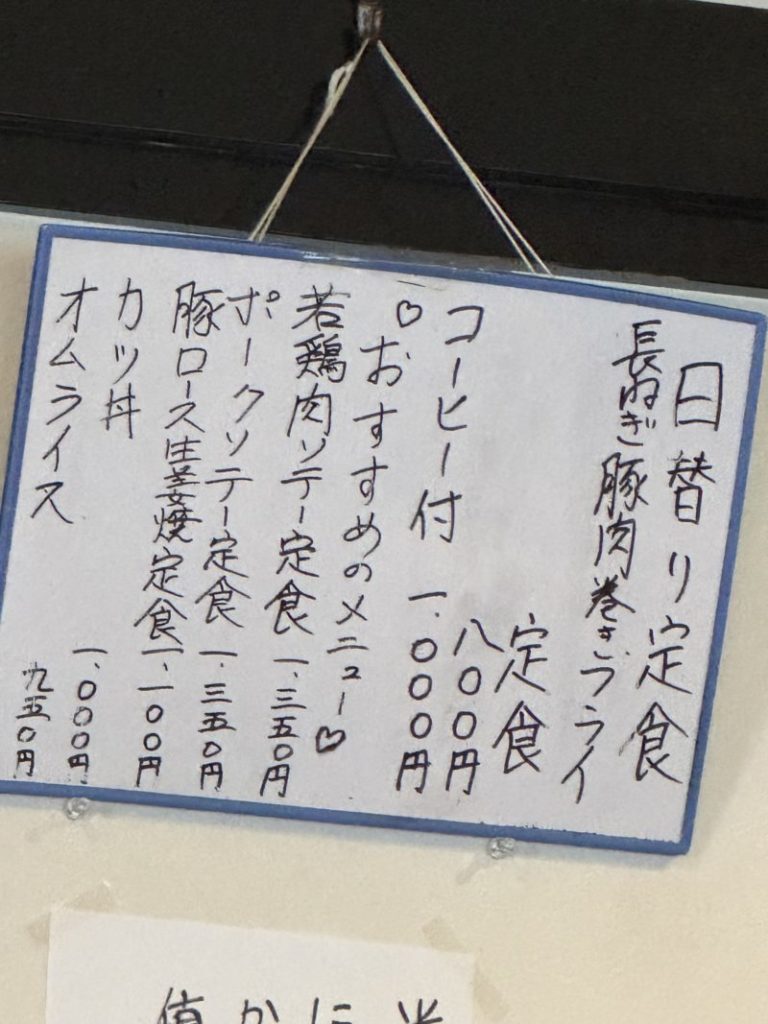 日替り定食
長ねぎ豚肉巻きフライ
定食
八〇〇円
コーヒー付 一、〇〇〇円
♡おすすめのメニュー♡
若鶏肉ソテー定食 一、三五〇円
ポークソテー定食 一、三五〇円
豚ロース生姜焼定食 一、一〇〇円
カツ丼 一、〇〇〇円
オムライス 九五〇円